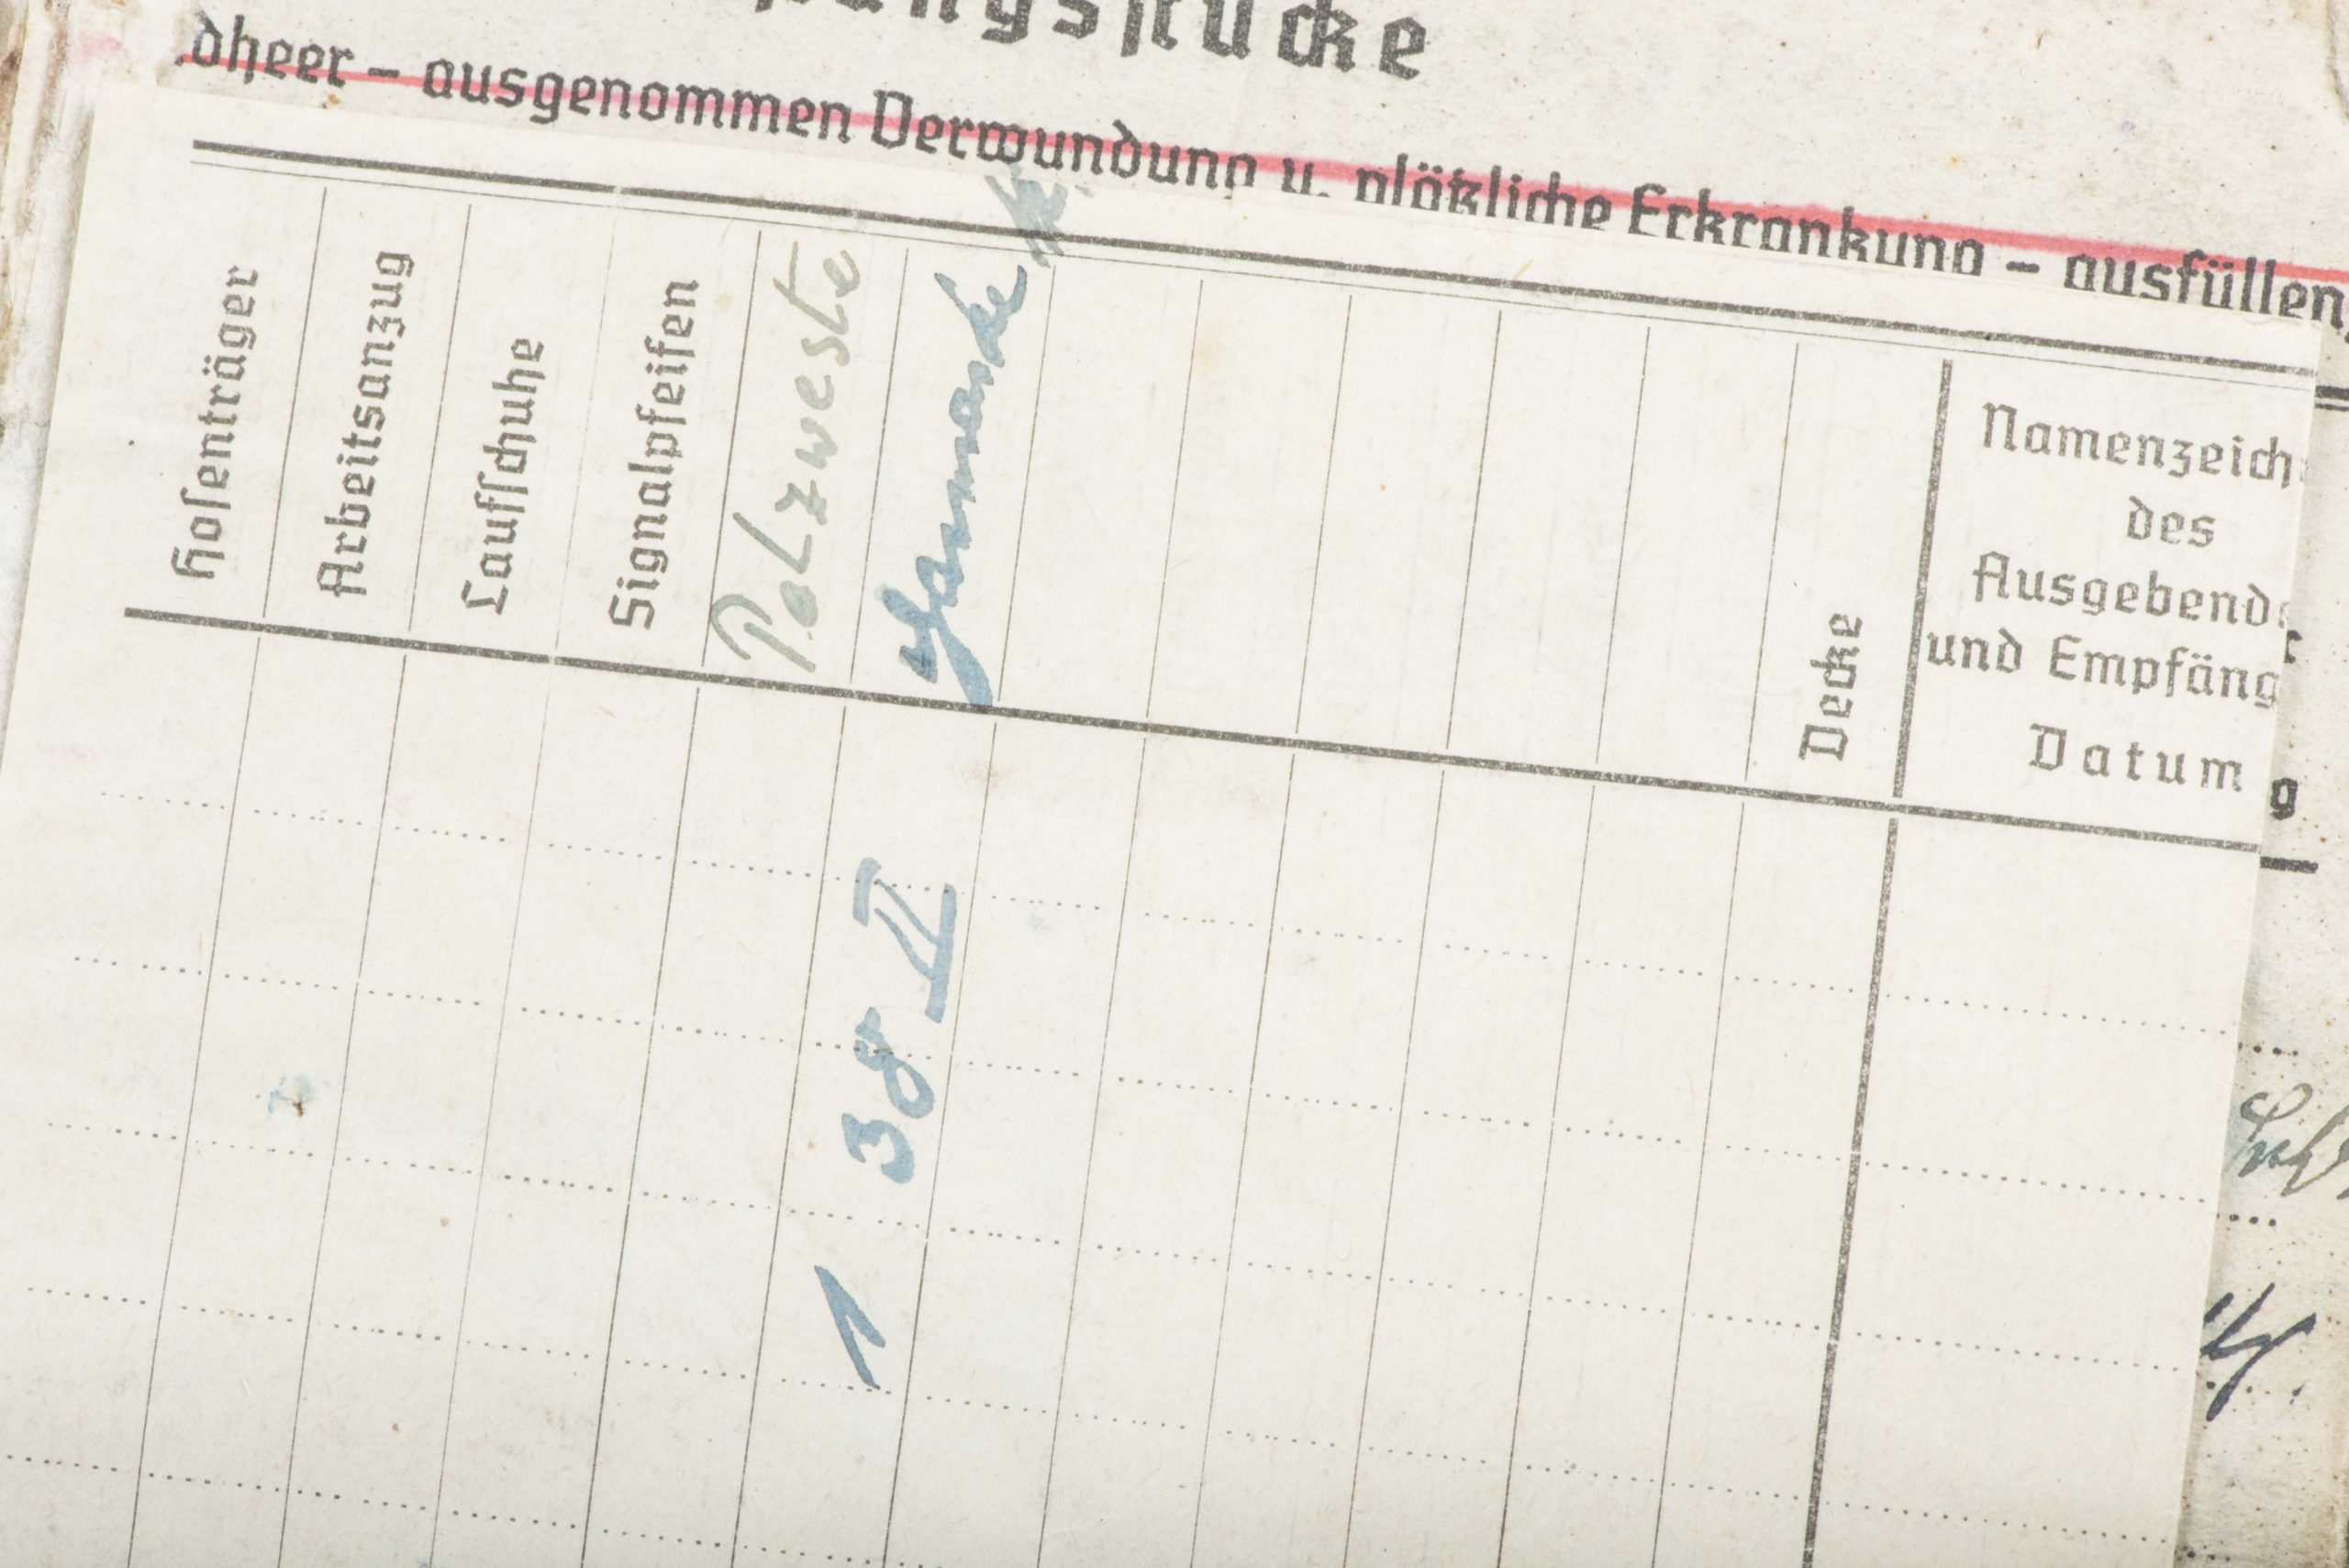 ungsstücke
dheer – ausgenommen Verwundung u. plötzliche Erkrankung – ausfüllen
Hosenträger
Arbeitsanzug
Laufschuhe
Signalpfeifen
Pelzweste
Gasmaske
Decke
Namenzeich
des
Ausgebende
und Empfäng
Datum
g
38 II
1